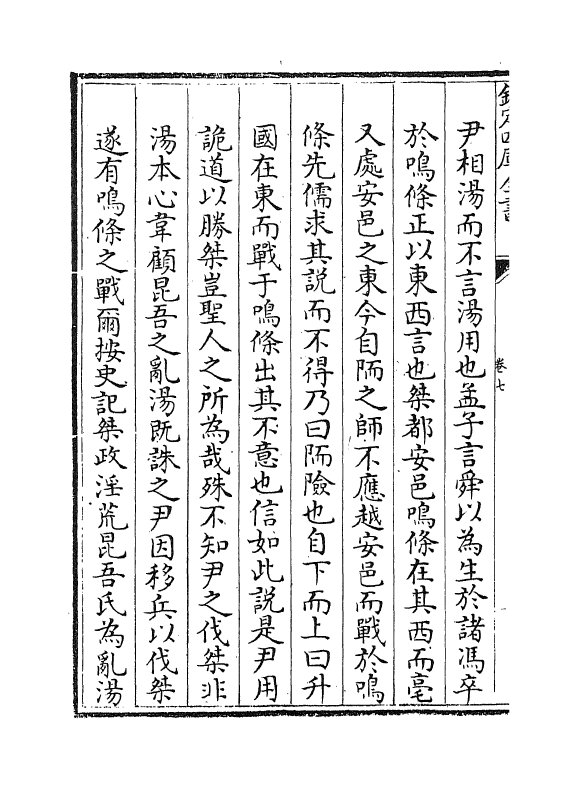 欽定四庫全書
卷七
尹相湯而不言湯用也孟子言舜以為生於諸馮卒
於鳴條正以東西言也桀都安邑鳴條在其西而亳
又處安邑之東今自陑之師不應越安邑而戰於鳴
條先儒求其說而不得乃曰陑險也自下而上曰升
國在東而戰于鳴條出其不意也信如此說是尹用
詭道以勝桀豈聖人之所為哉殊不知尹之伐桀非
湯本心韋顧昆吾之亂湯既誅之尹因移兵以伐桀
遂有鳴條之戰爾按史記桀政淫荒昆吾氏為亂湯